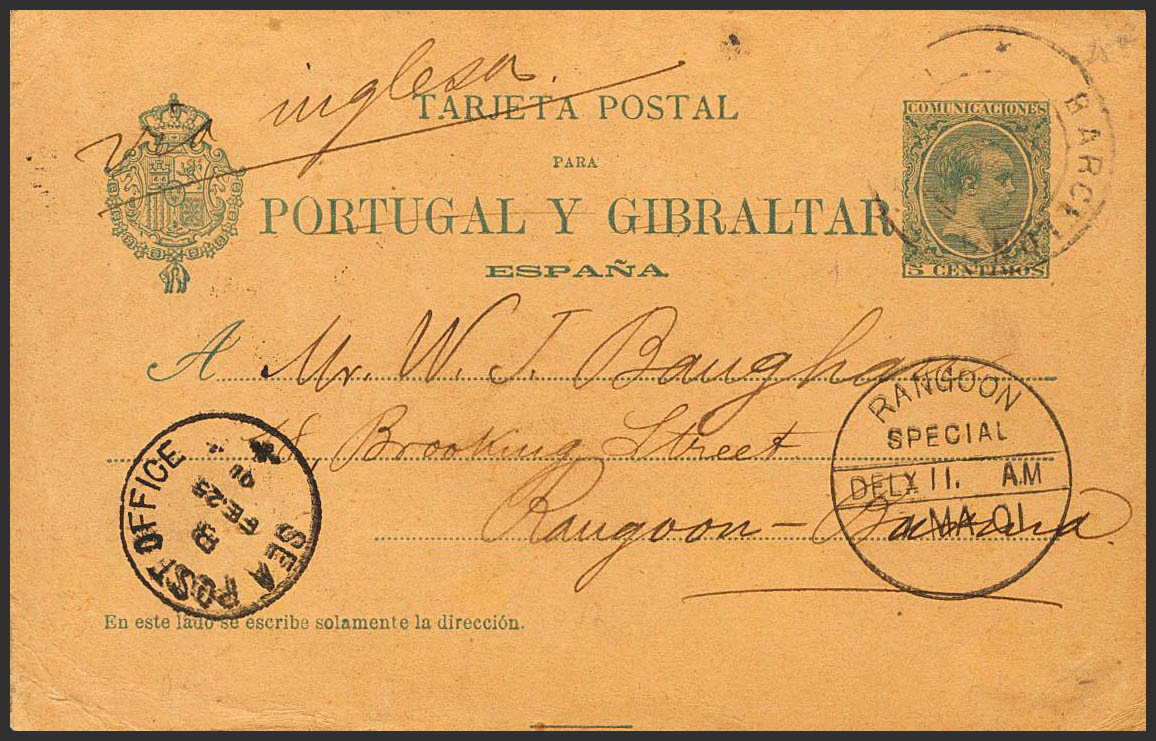 Via inglesa.
TARJETA POSTAL
PARA
PORTUGAL Y GIBRALTAR
ESPAÑA
COMUNICACIONES
5 CENTIMOS
BARCEL
A Mr. W. J. Baugh
8, Brooking Street
Rangoon – Burma
SEA POST OFFICE
B
FE 25
01
RANGOON
SPECIAL
DELY 11. AM
MA 01
En este lado se escribe solamente la dirección.